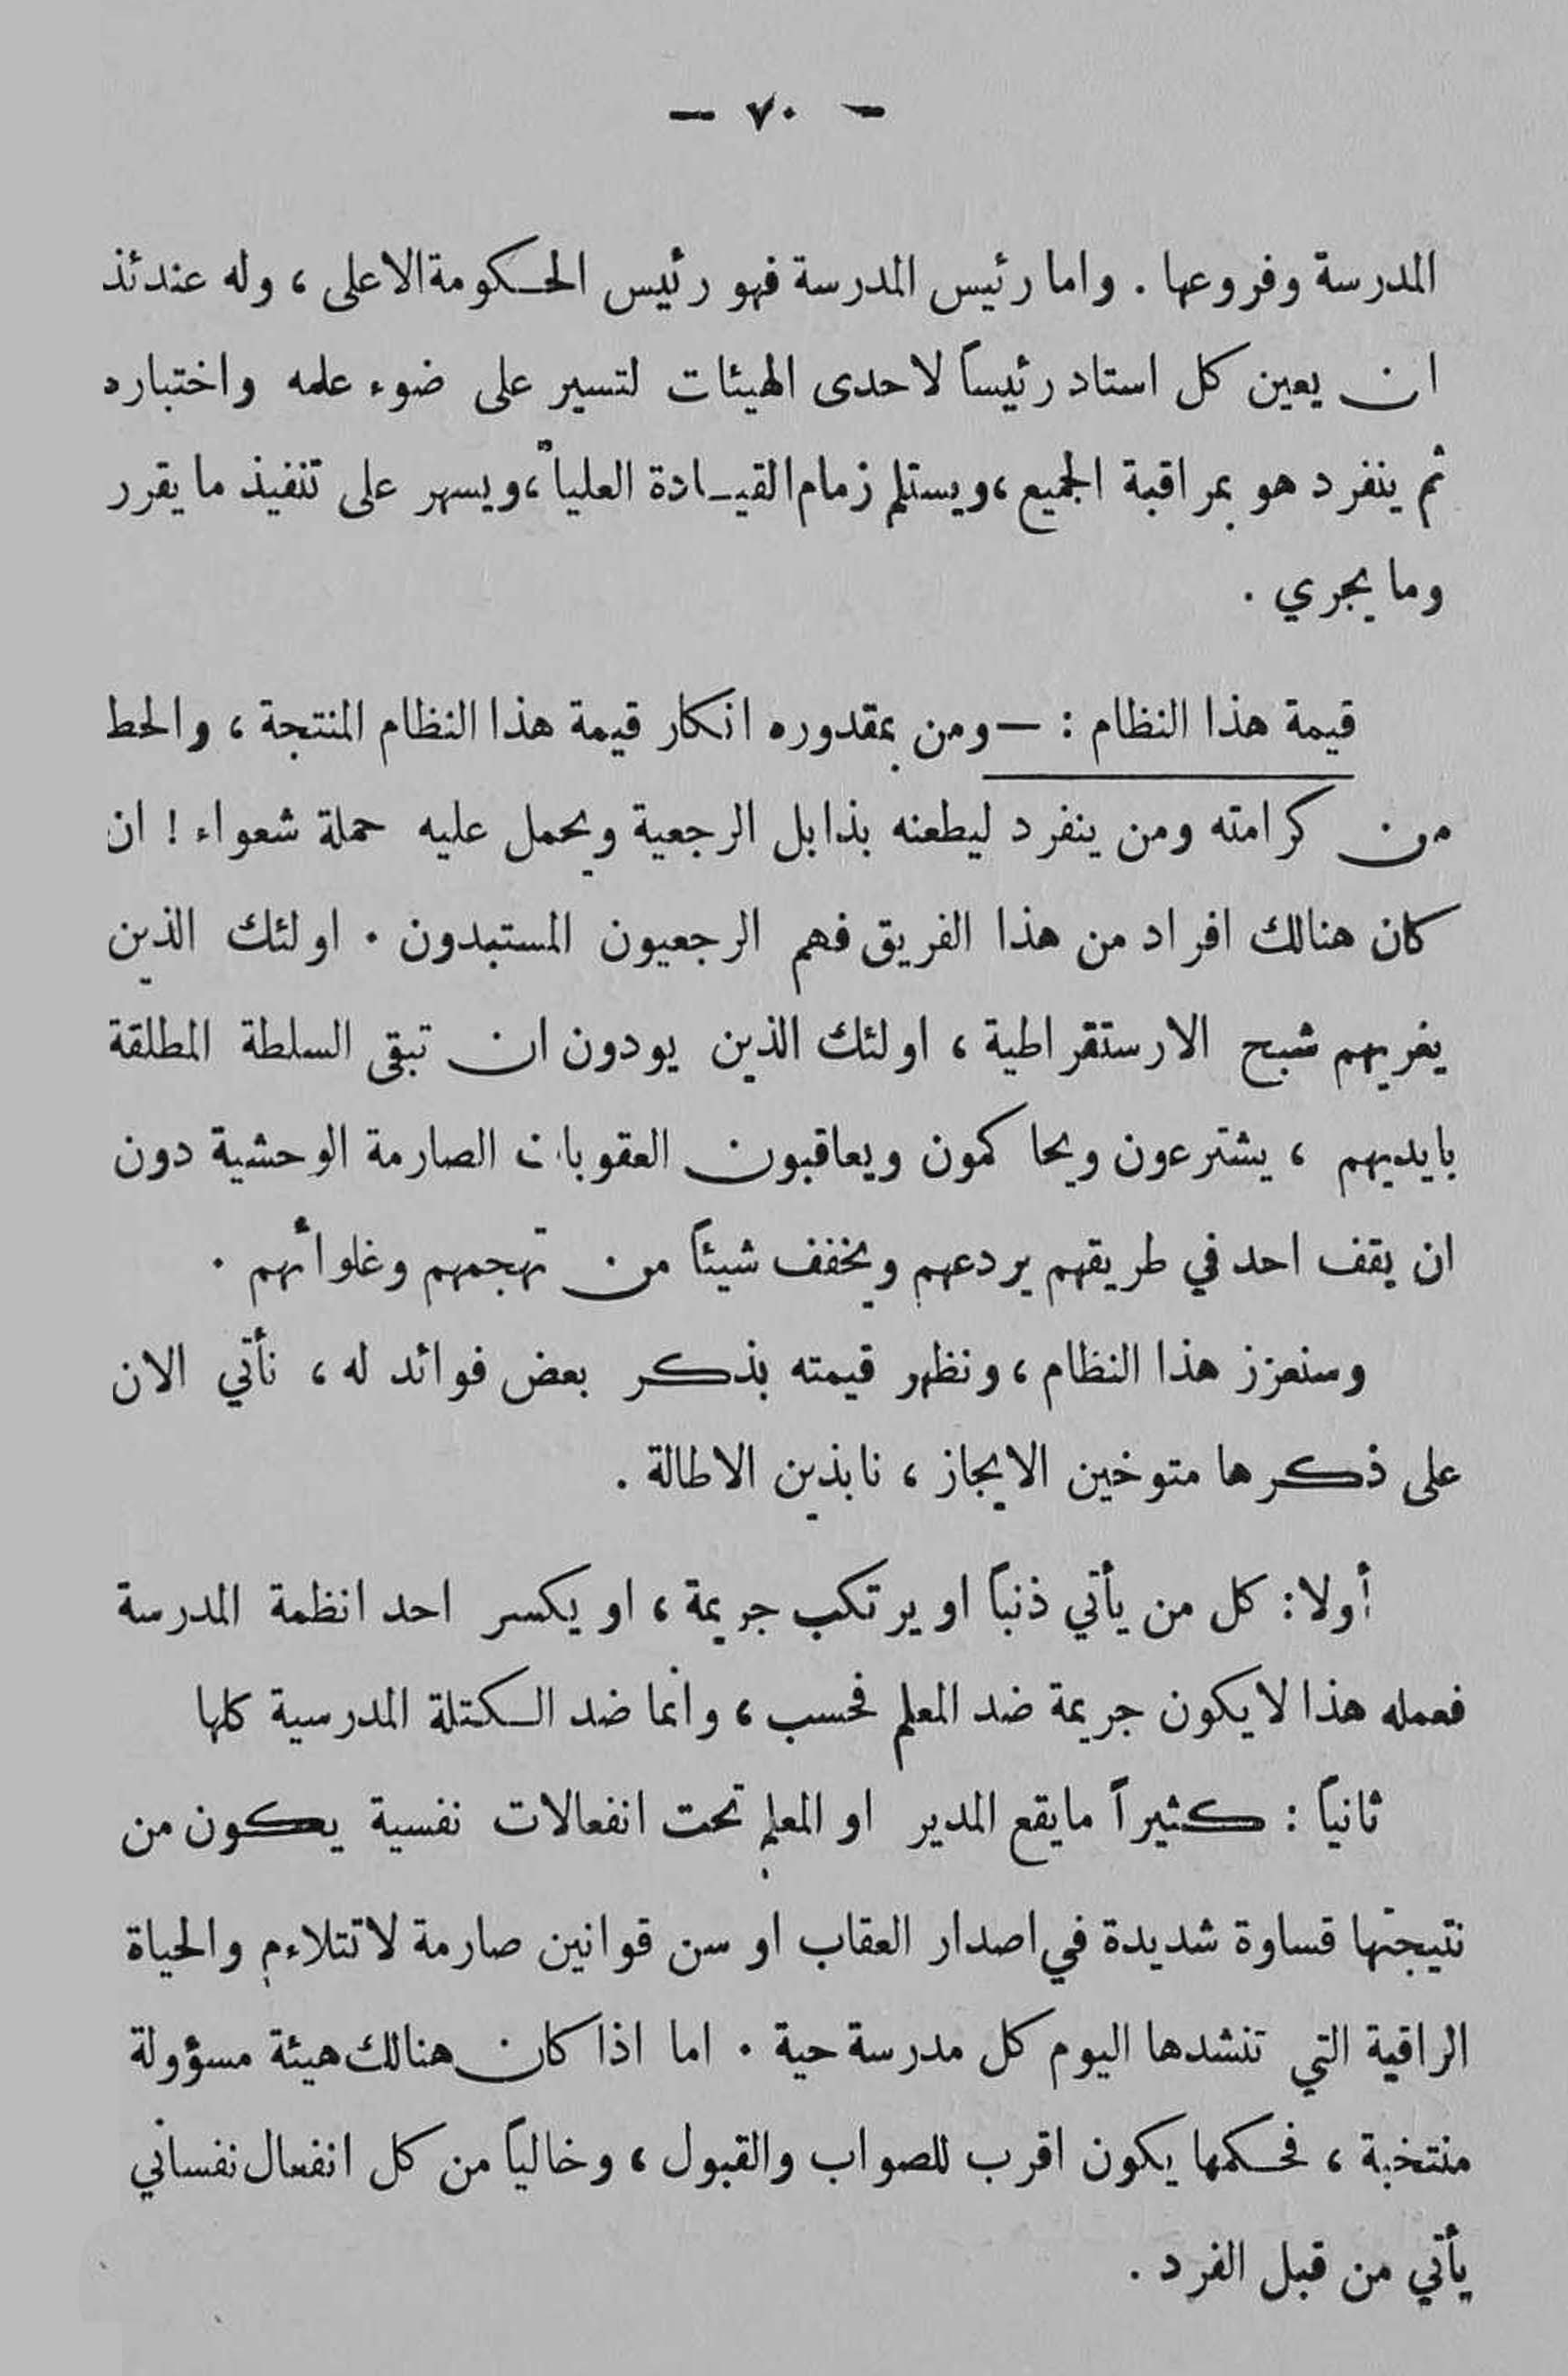 — ٧٠ —
المدرسة وفروعها . واما رئيس المدرسة فهو رئيس الحكومة الاعلى ، وله عندئذ
ان يعين كل استاد رئيساً لاحدى الهيئات لتسير على ضوء علمه واختباره
ثم ينفرد هو بمراقبة الجميع ، ويستلم زمام القيادة العليا ، ويسهر على تنفيذ ما يقرر
وما يجري .
قيمة هذا النظام : — ومن بمقدوره انكار قيمة هذا النظام المنتجة ، والحط
من كرامته ومن ينفرد ليطعنه بذابل الرجعية ويحمل عليه حملة شعواء ! ان
كان هنالك افراد من هذا الفريق فهم الرجعيون المستبدون . اولئك الذين
يغريهم شبح الارستقراطية ، اولئك الذين يودون ان تبقى السلطة المطلقة
بايديهم ، يشترعون ويحاكمون ويعاقبون العقوبات الصارمة الوحشية دون
ان يقف احد في طريقهم يردعهم ويخفف شيئاً من تهجمهم وغلوأئهم .
وسنعزز هذا النظام ، ونظهر قيمته بذكر بعض فوائد له ، نأتي الان
على ذكرها متوخين الايجاز ، نابذين الاطالة .
أولا : كل من يأتي ذنباً او يرتكب جريمة ، او يكسر احد انظمة المدرسة
فعمله هذا لا يكون جريمة ضد المعلم فحسب ، وانما ضد الكتلة المدرسية كلها
ثانياً : كثيراً ما يقع المدير او المعلم تحت انفعالات نفسية يكون من
نتيجتها قساوة شديدة في اصدار العقاب او سن قوانين صارمة لا تتلاءم والحياة
الراقية التي تنشدها اليوم كل مدرسة حية . اما اذا كان هنالك هيئة مسؤولة
منتخبة ، فحكمها يكون اقرب للصواب والقبول ، وخالياً من كل انفعال نفساني
يأتي من قبل الفرد .